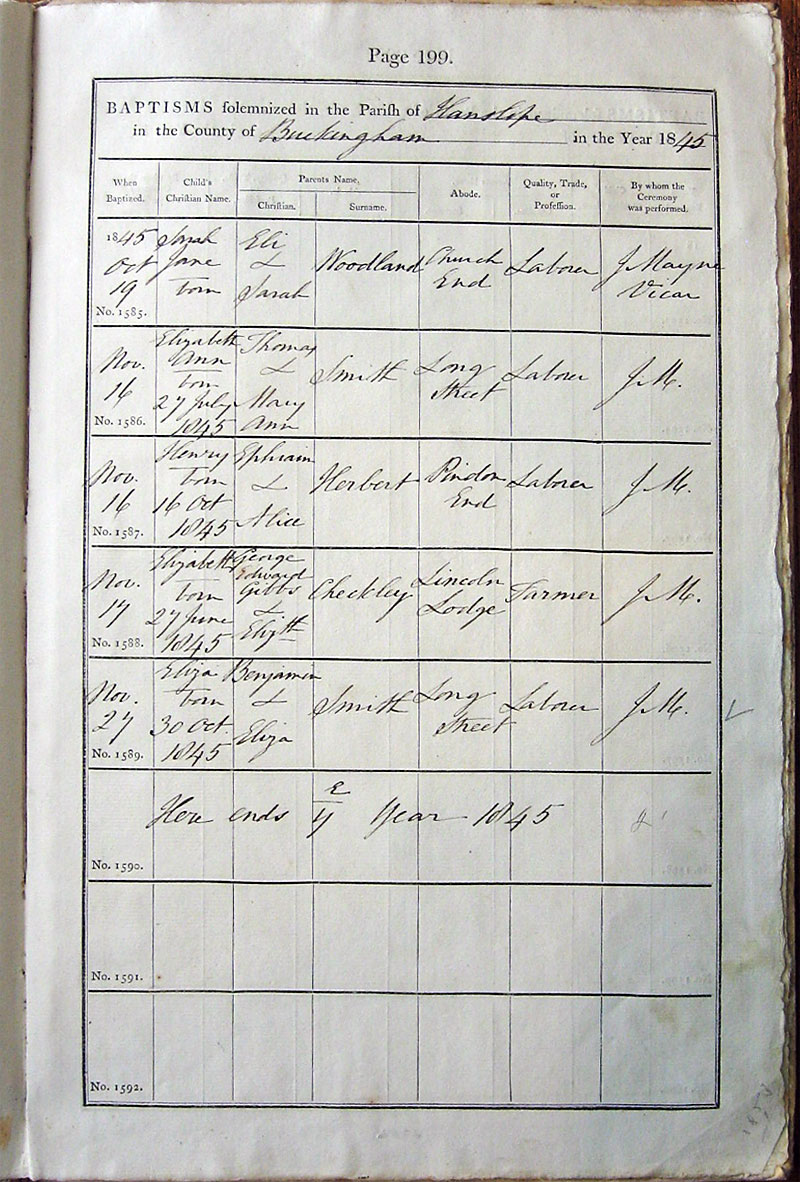 Page 199.
BAPTISMS solemnized in the Parish of Hanslope
in the County of Buckingham in the Year 1845
When Baptized.
Child's Christian Name.
Parents Name.
Christian.
Surname.
Abode.
Quality, Trade, or Profession.
By whom the Ceremony was performed.
1845 Oct 19
No. 1585.
Sarah Jane born
Eli & Sarah
Woodland
Church End
Laborer
J Mayne Vicar
Nov. 16
No. 1586.
Elizabeth Ann born 27 July 1845
Thomas & Mary Ann
Smith
Long Street
Laborer
J. M.
Nov. 16
No. 1587.
Henry born 16 Oct 1845
Ephraim & Alice
Herbert
Pindon End
Laborer
J. M.
Nov. 17
No. 1588.
Elizabeth born 27 June 1845
George Edward Gibbs & Elizth
Checkley
Lincoln Lodge
Farmer
J. M.
Nov. 27
No. 1589.
Eliza born 30 Oct. 1845
Benjamin & Eliza
Smith
Long Street
Laborer
J. M.
Here ends ye Year 1845
No. 1590.
No. 1591.
No. 1592.